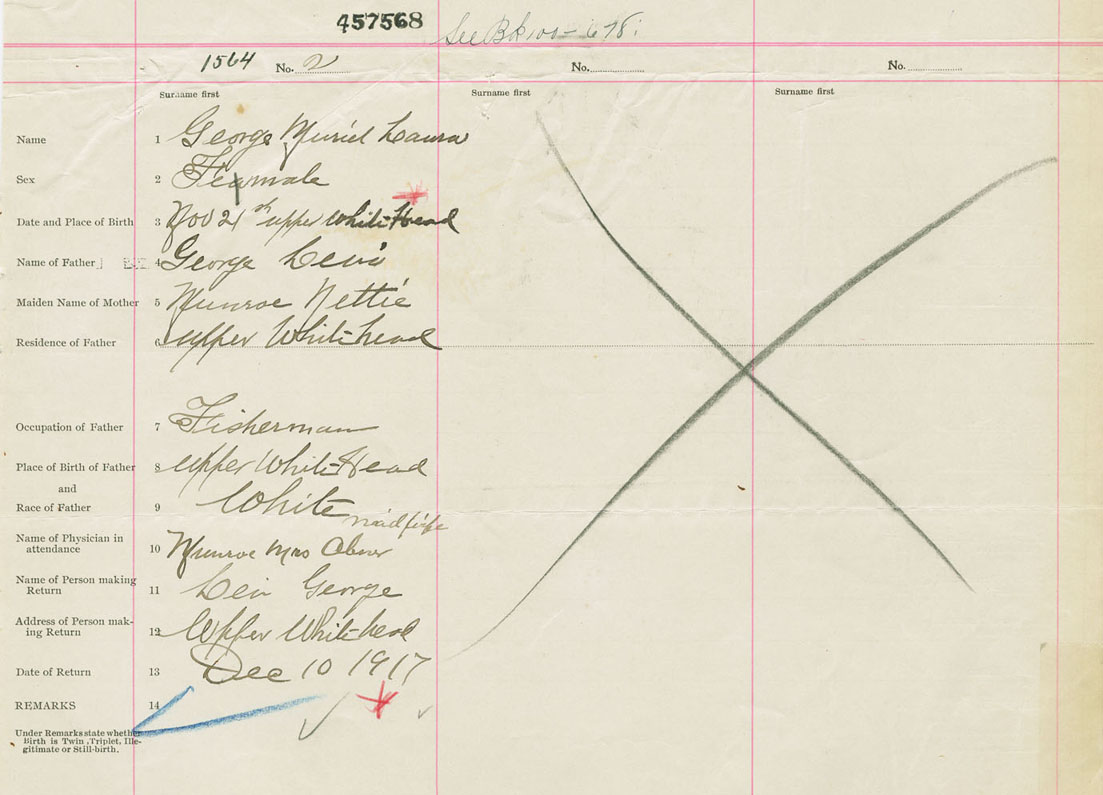 457568
See Bk 100 - 678.
1564 No. 2 No. No.
Surname first Surname first Surname first
Name 1 George Muriel Laura
Sex 2 Feamale
Date and Place of Birth 3 Nov 21st upper White Head
Name of Father 4 George Levi
Maiden Name of Mother 5 Munroe Nettie
Residence of Father 6 upper Whitehead
Occupation of Father 7 Fisherman
Place of Birth of Father 8 upper White Head
and
Race of Father 9 White
midfife
Name of Physician in
attendance 10 Munroe Mrs Abner
Name of Person making
Return 11 Levi George
Address of Person mak-
ing Return 12 Upper Whitehead
Date of Return 13 Dec 10 1917
REMARKS 14
Under Remarks state whether
Birth is Twin, Triplet, Ille-
gitimate or Still-birth.